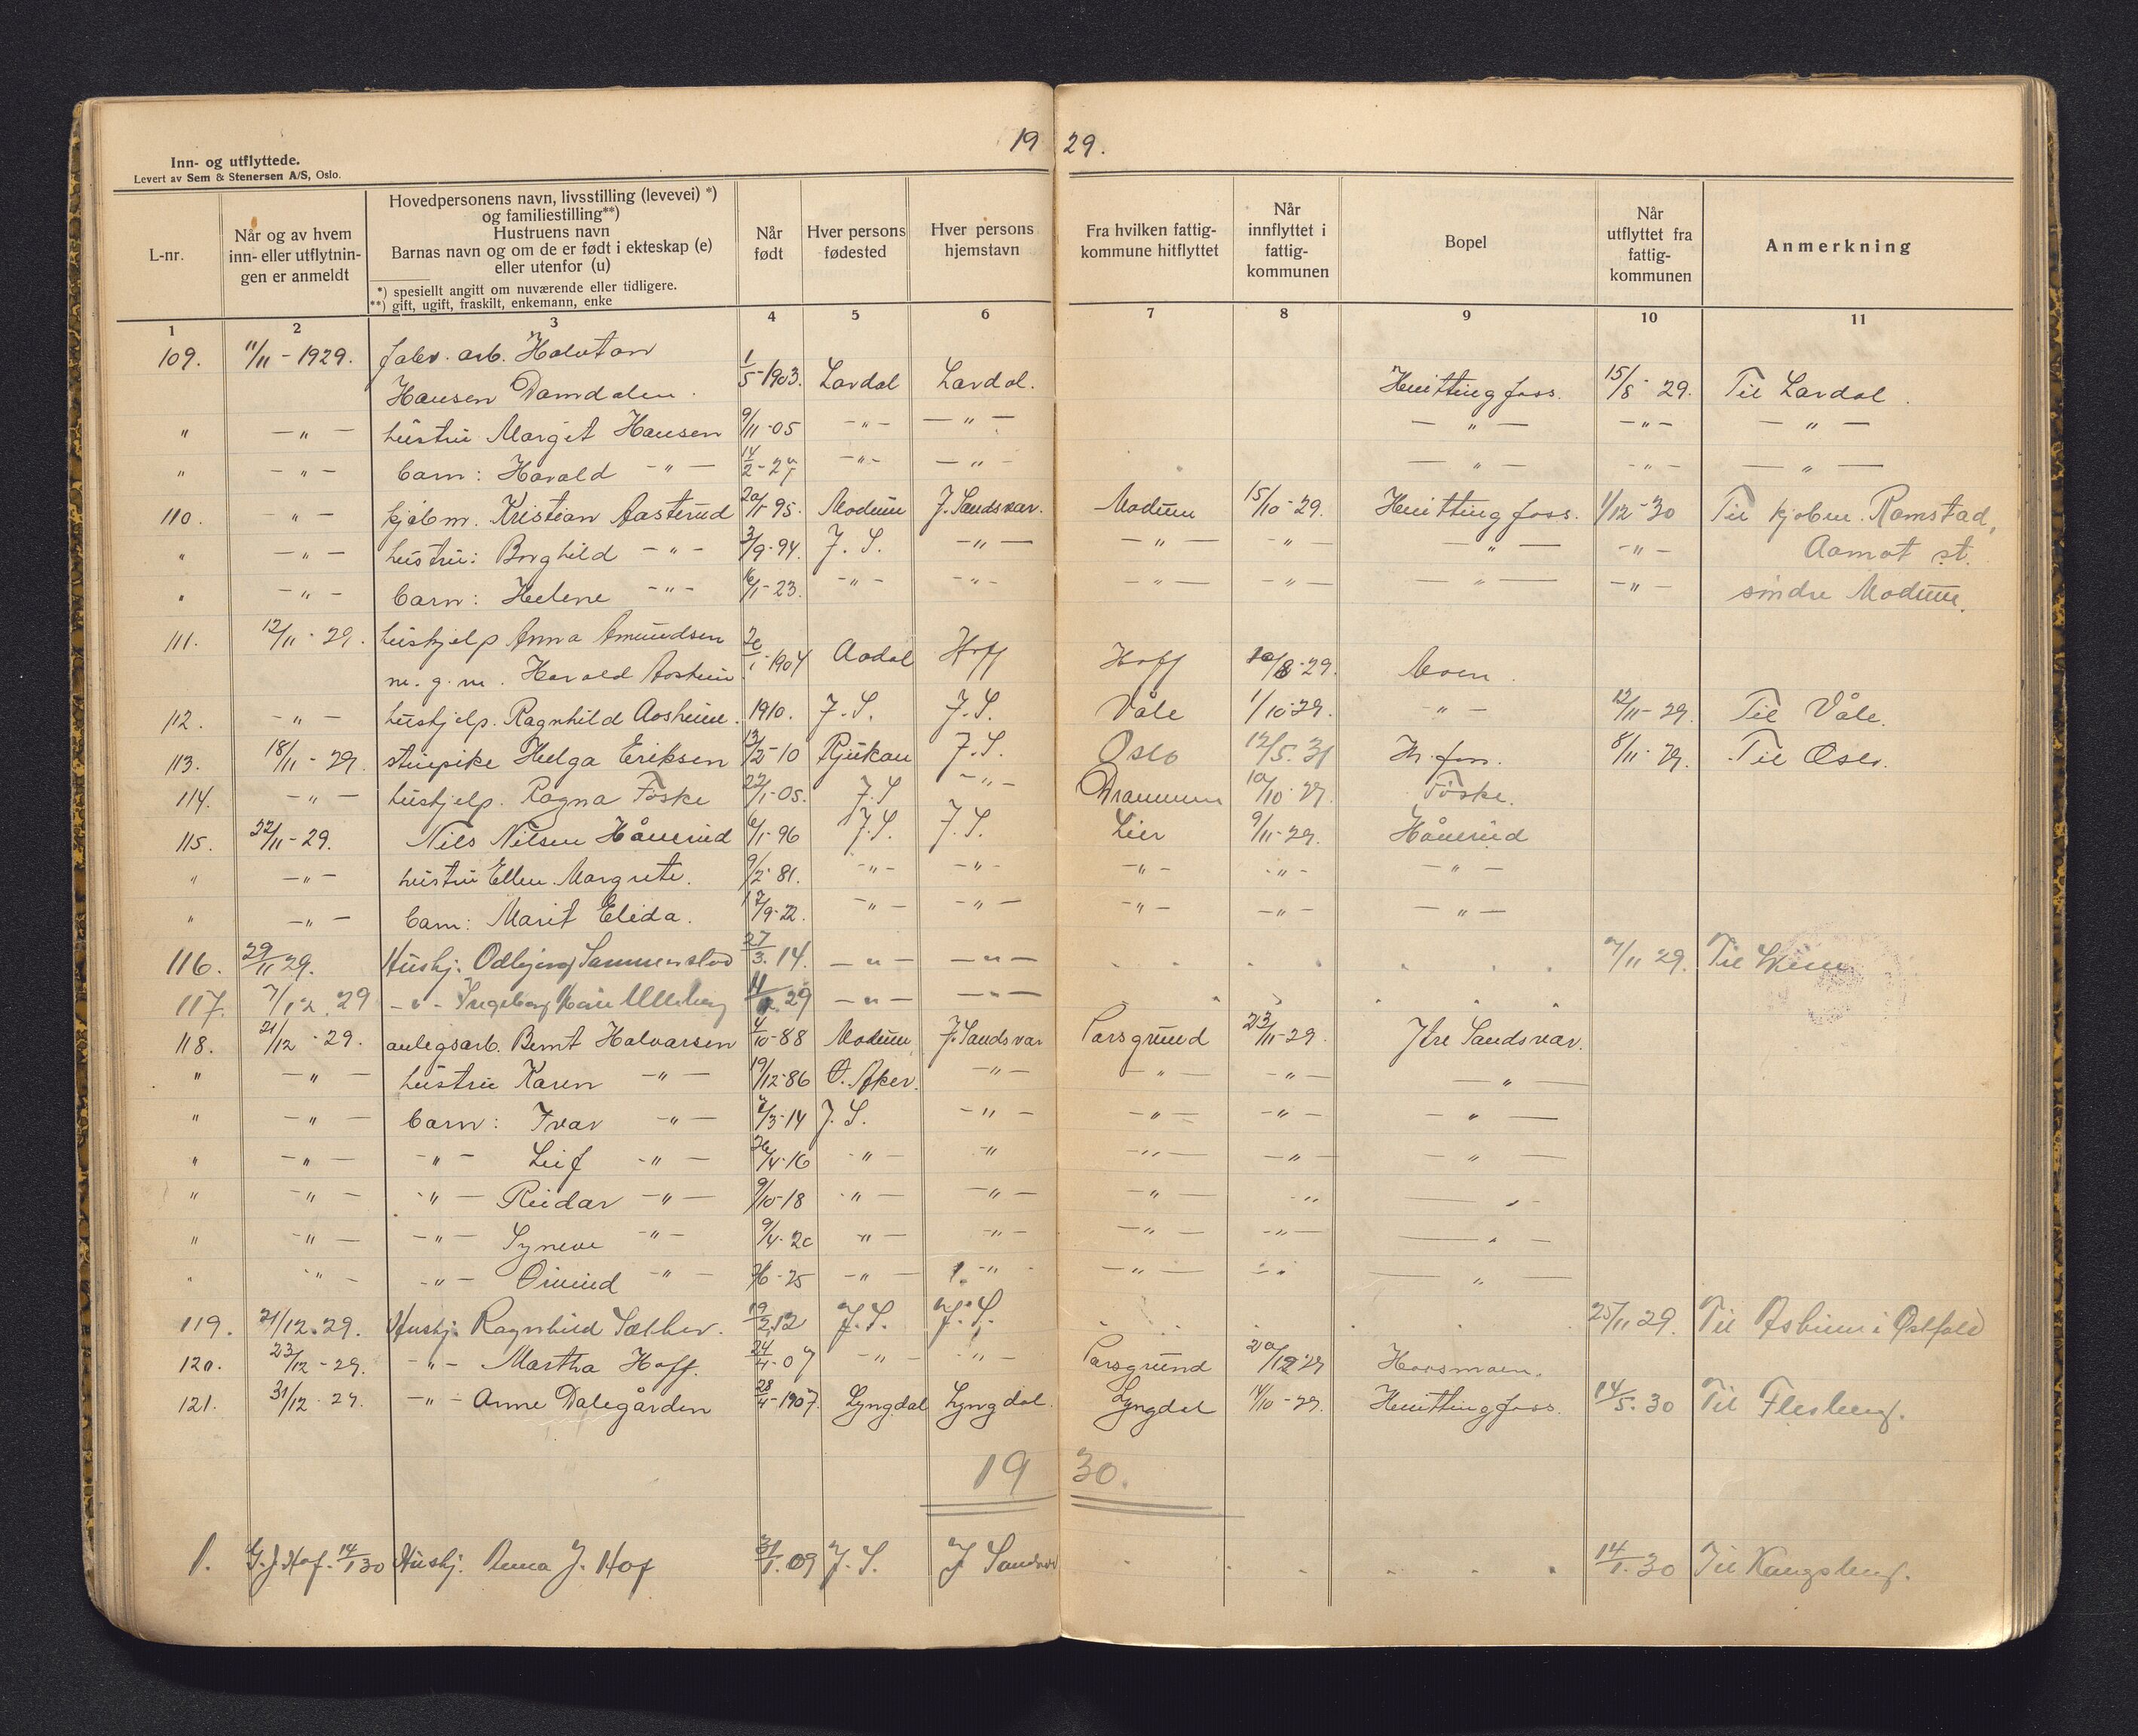 19 29.
Inn- og utflyttede.
Levert av Sem & Stenersen A/S, Oslo.
L-nr.
Når og av hvem inn- eller utflytningen er anmeldt
Hovedpersonens navn, livsstilling (levevei) *)
og familiestilling**)
Hustruens navn
Barnas navn og om de er født i ekteskap (e)
eller utenfor (u)
*) spesiellt angitt om nuværende eller tidligere.
**) gift, ugift, fraskilt, enkemann, enke
Når født
Hver persons fødested
Hver persons hjemstavn
Fra hvilken fattigkommune hitflyttet
Når innflyttet i fattigkommunen
Bopel
Når utflyttet fra fattigkommunen
Anmerkning
1 2 3 4 5 6 7 8 9 10 11
109. 11/11 - 1929. fabr. arb. Halvtan
Hansen Damdalen. 1/5-1903. Lardal Lardal. Hvittingfoss. 15/8 - 29. Til Lardal.
" - " - hustru Margit Hansen 9/11-05 - " - - " - - " - - " - - " -
" - " - barn: Harald - " - 14/2-27 - " - - " - - " - - " - - " -
110. - " - kjøbm. Kristian Aasterud 20/1-95. Modum J. Sandsvær. Modum 15/10-29. Hvittingfoss. 1/12-30 Til kjøbm. Ramstad,
" - " - hustru: Borghild - " - 3/9-94. J. S. - " - - " - - " - - " - - " - Aamot st.
" - " - barn: Helene - " - 16/1-23. - " - - " - - " - - " - - " - - " - søndre Modum.
111. 12/11-29. hushjelp Anna Amundsen
m. g. m. Harald 1904 Hoff Hoff 10/8-29. Moen.
112. - " - hushjelp. Ragnhild Aasheim. 1910. J. S. J. S. Våle 1/10-29. - " - 12/11-29. Til Våle.
113. 18/11-29. stuepike Helga Eriksen 13/2-10 Rjukan J. S. Oslo 12/5.31 H. foss. 8/11-29. Til Oslo.
114. - " - hushjelp. Ragna Foske 22/1-05. J. S. - " - Drammen 10/10-29. Foske.
115. 22/11-29. Nils Nilsen Hånerud 6/1-96 J. S. J. S. Lier 9/11-29. Hånerud
" - " - hustru Ellen Margrete. 9/2-81. - " - - " - - " - - " - - " -
" - " - barn: Marit Elida. 17/9-22. - " - - " - - " - - " - - " -
116. 29/11 29. Hushj. Odbjørg 27/3.14. - " - - " - 7/11 29. Til
117. 7/12.29 - " - Ingeborg 29 - " - - " -
118. 21/12-29. anlegsarb. Bernt Halvarsen 4/10-88 Modum J. Sandsvær Porsgrund 23/11-29. Ytre Sandsvær.
" - " - hustru Karen - " - 19/12-86 Ø. Aker. - " - - " - - " - - " -
" - " - barn: Ivar - " - 7/3-14 J. S. - " - - " - - " - - " -
" - " - - " - Leif - " - 26/4-16 - " - - " - - " - - " - - " -
" - " - - " - Reidar - " - 9/10-18 - " - - " - - " - - " - - " -
" - " - - " - Syneve - " - 9/4-20 - " - - " - - " - - " - - " -
" - " - - " - Øivind - " - 25 - " - - " - - " - - " - - " -
119. 21/12.29. Hushj. Ragnhild Sæther. 19/2.12 J. S. J. S. 25/11 29. Til Askim i Østfold
120. 23/12-29. - " - Martha Hoff. 24/4-07 - " - - " - Porsgrund 20/12-29 Horsmoen.
121. 31/12-29. - " - Anne Dalegården 28/4-1907. Lyngdal Lyngdal Lyngdal 14/10-29. Hvittingfoss. 14/5.30 Til Flesberg.
19 30.
1. G. J. Hof. 14/1 30 Hushj. Anna J. Hof 31/1.09 J. S. J Sandsvær 14/1.30 Til Kongsberg.